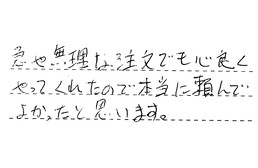 急や無理な注文でも心良く
やってくれたので本当に頼んで
よかったと思います。